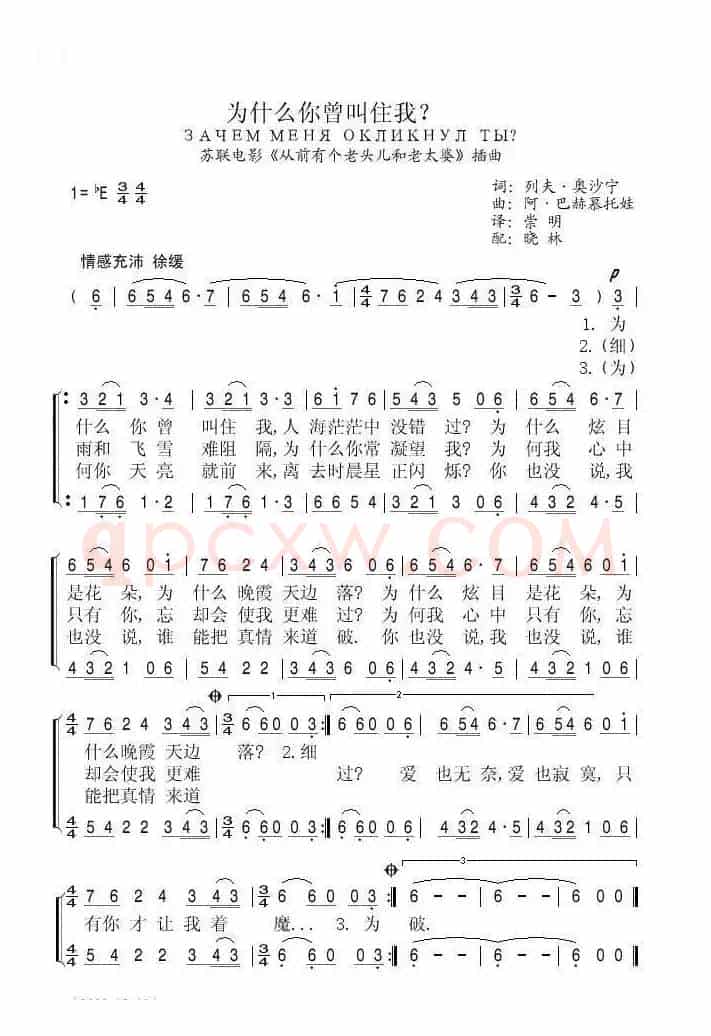 为什么你曾叫住我？
ЗАЧЕМ МЕНЯ ОКЛИКНУЛ ТЫ?
苏联电影《从前有个老头儿和老太婆》插曲
1=♭E 3/4 4/4
词：列夫·奥沙宁
曲：阿·巴赫慕托娃
译：崇 明
配：晓 林
情感充沛 徐缓
p
( 6 | 6546·7 | 6546·i | 4/4 7624343 | 3/4 6-3 ) 3 |
1. 为
2.(细)
3.(为)
321 3·4 | 321 3·3 | 6i76 | 543 506 | 654 6·7
什么 你曾 叫住 我,人 海茫茫中 没错 过? 为 什么 炫目
雨和 飞雪 难阻 隔,为 什么你常 凝望 我? 为 何我 心中
何你 天亮 就前 来,离 去时晨星 正闪 烁? 你 也没 说,我
176 1·2 | 176 1·1 | 6654 | 321 306 | 432 4·5
qpcxw.COM
654 60i | 7624 | 343 606 | 6546·7 | 654601
是花 朵,为 什么晚霞 天边 落? 为 什么 炫目 是花 朵,为
只有 你,忘 却会使我 更难 过? 为 何我 心中 只有 你,忘
也没 说,谁 能把真情 来道 破. 你 也没 说,我 也没 说,谁
432 106 | 5422 | 343 606 | 4324·5 | 432106
1 2
4/4 7624 343 | 3/4 66003 :| 66006 | 6546·7 | 65460i
什么晚霞 天边 落? 2.细
却会使我 更难 过? 爱 也无 奈,爱 也寂 寞,只
能把真情 来道
4/4 5422 343 | 3/4 66003 :| 66006 | 4324·5 | 432106
3
4/4 7 6 2 4 3 4 3 | 3/4 6 6 0 0 3 :| 6 - - | 6 - - | 6 - -
有你 才 让 我 着 魔... 3. 为 破.
4/4 5 4 2 2 3 4 3 | 3/4 6 6 0 0 3 :| 6 - - | 6 - - | 6 - -